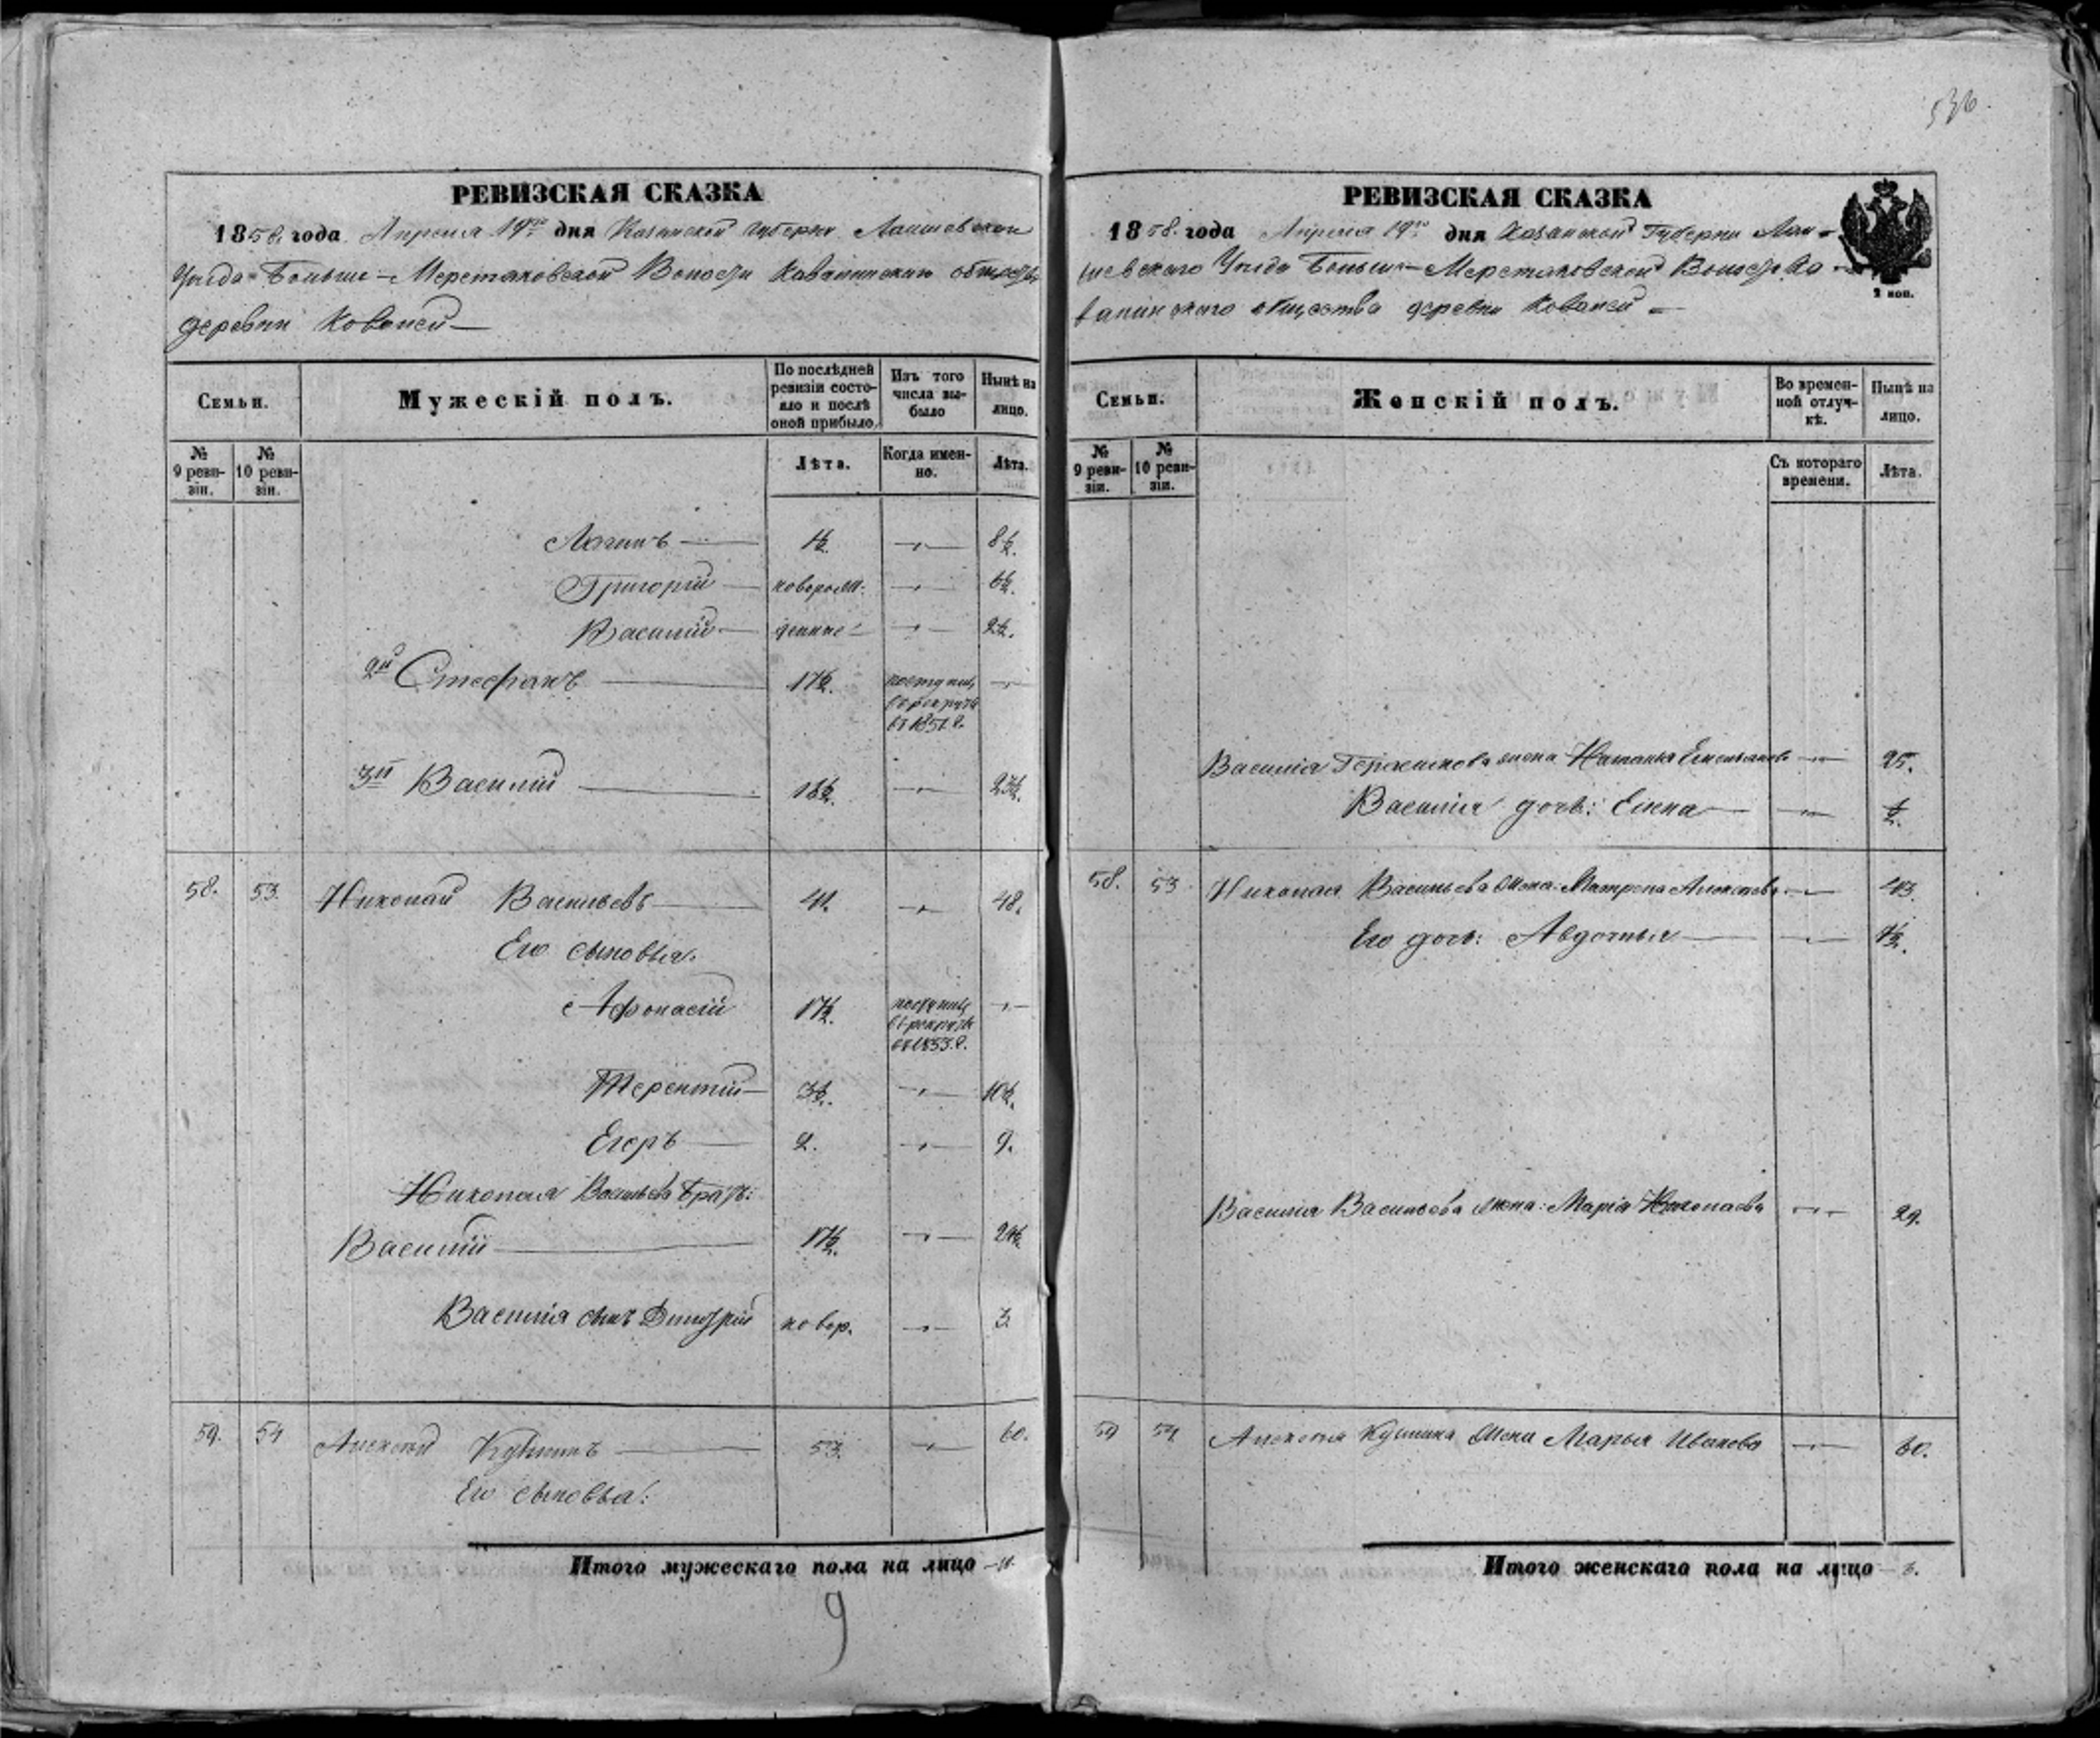 536.
РЕВИЗСКАЯ СКАЗКА
1858. года Апреля 19го дня Казанской Губерни Лаишевскаго
Уезда Больше-Меретяковской Волости Ковалинскаго общества
деревни Ковалей
Семьи.
Мужескій полъ.
По послѣдней ревизіи состояло и послѣ оной прибыло.
Изъ того числа выбыло
Нынѣ на лицо.
№ 9 ревизіи.
№ 10 ревизіи.
Лѣта.
Когда именно.
Лѣта.
Логинъ 1½. 8½.
Григорій новорож- 6½.
Василій денные 2½.
2й Стефанъ 17½. поступилъ
в рекруты
въ 1851 г.
3й Василій 16½. 23½.
58. 53. Николай Васильевъ 41. 48.
Его сыновья.
Афонасій 17½. поступилъ
въ рекруты
въ 1853. г.
Терентій 3½. 10½.
Егоръ 2. 9.
Николая Васильева братъ:
Василій 17½. 24½.
Василія сынъ Димитрій новор. 3
59. 54 Алексей Кузминъ 53. 60.
Его сыновья:
Итого мужескаго пола на лицо
9
РЕВИЗСКАЯ СКАЗКА
1858. года Апреля 19го дня Казанской Губерни Лаи-
шевскаго Уезда Больше-Меретяковской Волости Ко-
валинскаго общества деревни Ковалей
2 коп.
Семьи.
Женскій полъ.
Во временной отлучкѣ.
Нынѣ на лицо.
№ 9 ревизіи.
№ 10 ревизіи.
Съ котораго времени.
Лѣта.
Василія Герасимова жена Наталья Емельянова 25.
Василія дочь: Елена ½.
58. 53 Николая Васильева жена: Матрена Алексеева 43.
Его дочь: Авдотья
Василія Васильева жена: Марія Николаева 29.
59 54 Алексея Кузмина жена Марья Иванова 60.
Итого женскаго пола на лицо